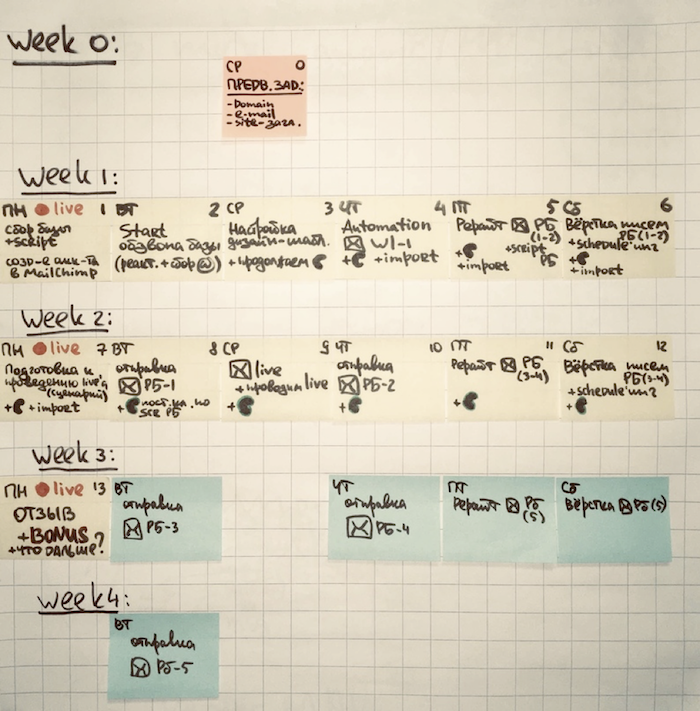 Week 0:
СР 0
ПРЕДВ. ЗАД.:
- Domain
- e-mail
- site-загл.
Week 1:
ПН live 1
сбор базы
+script
созд-е акк-та
в MailChimp
ВТ 2
Start
обзвона базы
(реакт. + сбор @)
СР 3
Настройка
дизайн-шабл.
+ продолжаем
ЧТ 4
Automation
WL-1
+ + import
ПТ 5
Рерайт РБ
(1-2)
+ +script
РБ
+import
Сб 6
Вёрстка писем
РБ(1-2)
+schedule'инг
+
+import
Week 2:
ПН live 7
Подготовка к
проведению live'а
(сценарий)
+ +import
ВТ 8
отправка
РБ-1
+ пост.ка.по
SCR РБ
СР 9
live
+проводим live
+
ЧТ 10
отправка
РБ-2
+
ПТ 11
Рерайт РБ
(3-4)
+
Сб 12
Вёрстка писем
РБ(3-4)
+schedule'инг
+
Week 3:
ПН live 13
ОТЗЫВ
+BONUS
+ЧТО ДАЛЬШЕ?
ВТ
отправка
РБ-3
ЧТ
отправка
РБ-4
ПТ
Рерайт РБ
(5)
Сб
Вёрстка РБ(5)
Week 4:
ВТ
отправка
РБ-5